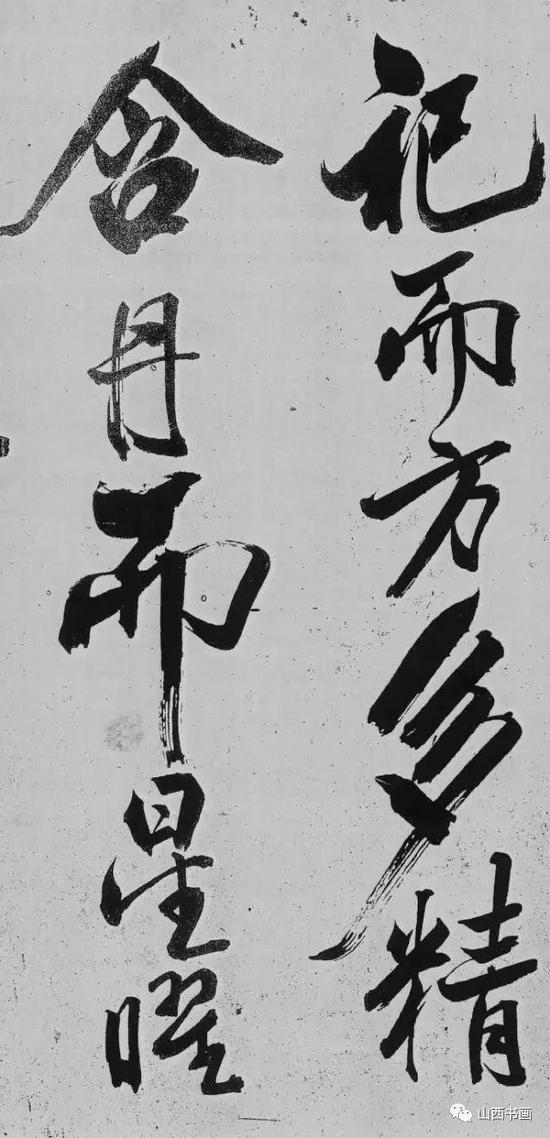 祀而方多精
含丹而星曜
山西书画